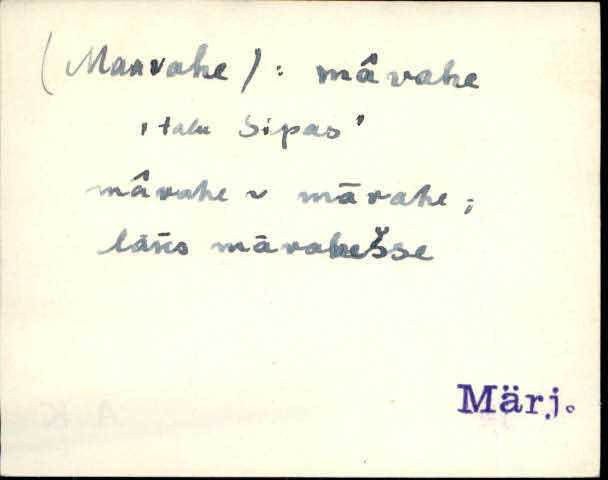 (Maavahe): mâvahe
‚talu Sipas’
mâvahe ~ māvahe;
läks māvahešse
Märj.